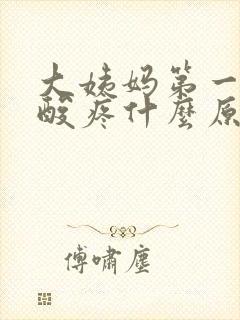 大姨妈第一
酸疼什麼原
傅嘯塵